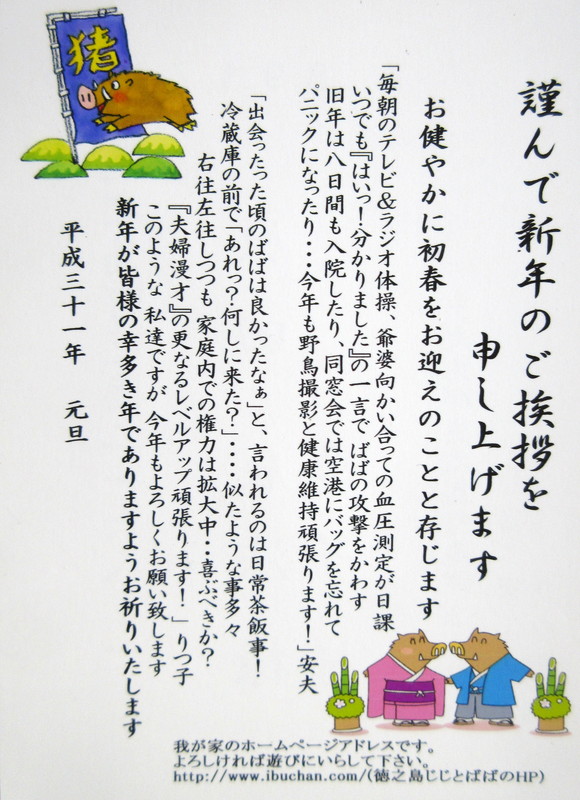 謹んで新年のご挨拶を
申し上げます
お健やかに初春をお迎えのことと存じます
「毎朝のテレビ&ラジオ体操、爺婆向かい合っての血圧測定が日課
いつでも『はいっ!分かりました』の一言で ばばの攻撃をかわす
旧年は八日間も入院したり、同窓会では空港にバッグを忘れて
パニックになったり・・・今年も野鳥撮影と健康維持頑張ります!」安夫
「出会ったった頃のばばは良かったなぁ」と、言われるのは日常茶飯事!
冷蔵庫の前で「あれっ?何しに来た?」・・・・似たような事多々
右往左往しつつも 家庭内での権力は拡大中・・喜ぶべきか?
『夫婦漫才』の更なるレベルアップ頑張ります!」りつ子
このような 私達ですが 今年もよろしくお願い致します
新年が皆様の幸多き年でありますようお祈りいたします
平成三十一年 元旦
猪
我が家のホームページアドレスです。
よろしければ遊びにいらして下さい。
http://www.ibuchan.com/(徳之島じじとばばのHP)